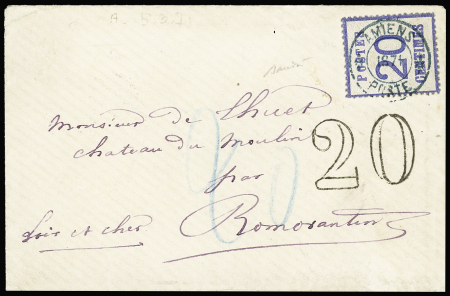 A. 5.3.71
POSTES
20
CENTIMES
AMIENS
1871
POSTE
Monsieur de Thuet
chateau du Moulin
par
20
20
Loir et cher
Romorantin